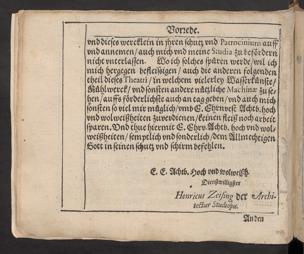 Vorrede.
vnd dieses wercklein in jhren schutz vnd Patrocinium auff
vnd annemen / auch mich vnd meine Studia zu befördern
nicht vnterlassen. Wo ich solches spüren werde / wil ich
mich hergegen befleissigen / auch die anderen folgenden
theil dieses Theatri / in welchem vielerley Wasserkünste /
Mühlwerck / vnd sonsten andere nützliche Machinæ zu se-
hen / auffs förderlichste auch an tag geben / vnd auch mich
sonsten so viel mir müglich / vmb E. Ehrnvest Achtb. hoch
vnd wolweißheiten zuverdienen / keinen fleiß noch arbeit
sparen. Vnd thue hiermit E. Ehrv. Achtb. hoch vnd wol-
weißheiten / sämptlich vnd sonderlich / dem Allmechtigen
Gott in seinen schutz vnd schirm befehlen.
E. E. Achtb. Hoch vnd wolweißh.
Dienstwilligster
Henricus Zeising der Archi-
tectur Studiosus.
An den